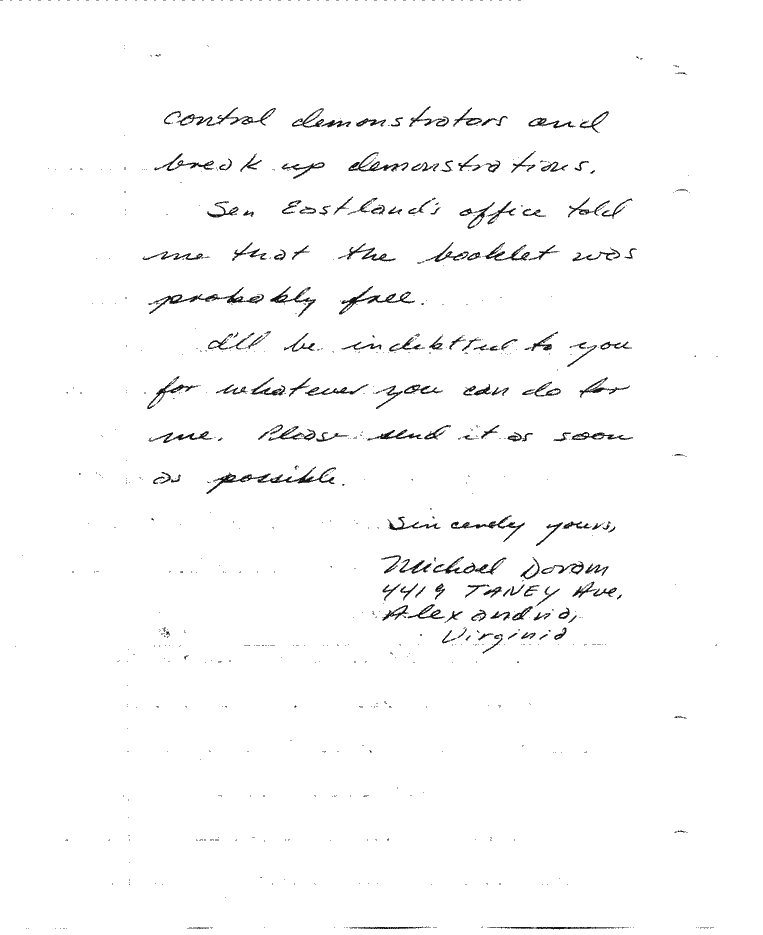 control demonstrators and
break up demonstrations.
Sen Eastland's office told
me that the booklet was
probably free.
I'll be indebtted to you
for whatever you can do for
me. Please send it as soon
as possible.
Sincerely yours,
Michael Doram
4419 TANEY Ave,
Alexandria,
Virginia